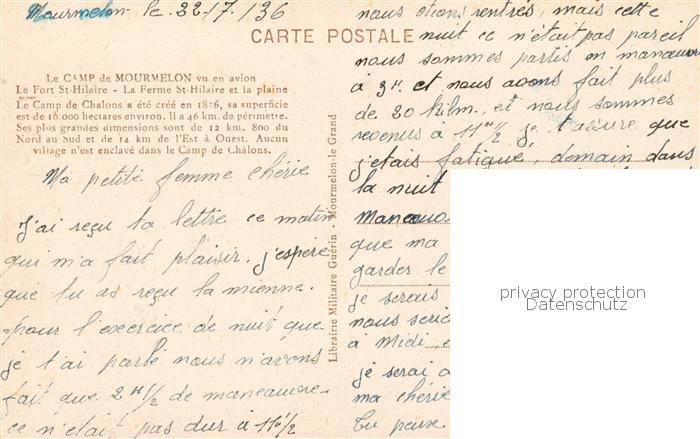 Mourmelon le 22/7/36
CARTE POSTALE
Le CAMP de MOURMELON vu en avion
Le Fort St-Hilaire - La Ferme St-Hilaire et la plaine
Le Camp de Chalons a été créé en 1816, sa superficie
est de 16.000 hectares environ. Il a 46 km. de périmètre.
Ses plus grandes dimensions sont de 12 km. 800 du
Nord au Sud et de 14 km de l'Est à Ouest. Aucun
village n'est enclavé dans le Camp de Châlons.
Ma petite femme chérie
J'ai reçu ta lettre ce matin
qui m'a fait plaisir. j'espère
que tu as reçu la mienne.
pour l'exercice de nuit que
je t'ai parlé nous n'avons
fait que 2H1/2 de manœuvre
ce n'etait pas dur à 11H1/2
Librairie Militaire Guérin - Mourmelon-le Grand
nous etions rentrés, mais cette
nuit ce n'était pas pareil
nous sommes partis en manœuvre
à 3H. et nous avons fait plus
de 20 kilm. et nous sommes
revenus à 11H1/2 je t'assure que
j'etais fatigué, demain dans
la nuit
manœuv
que ma
garder le
je serais
nous seri
à Midi,
je serai a
ma chérie
tu peux.
privacy protection
Datenschutz